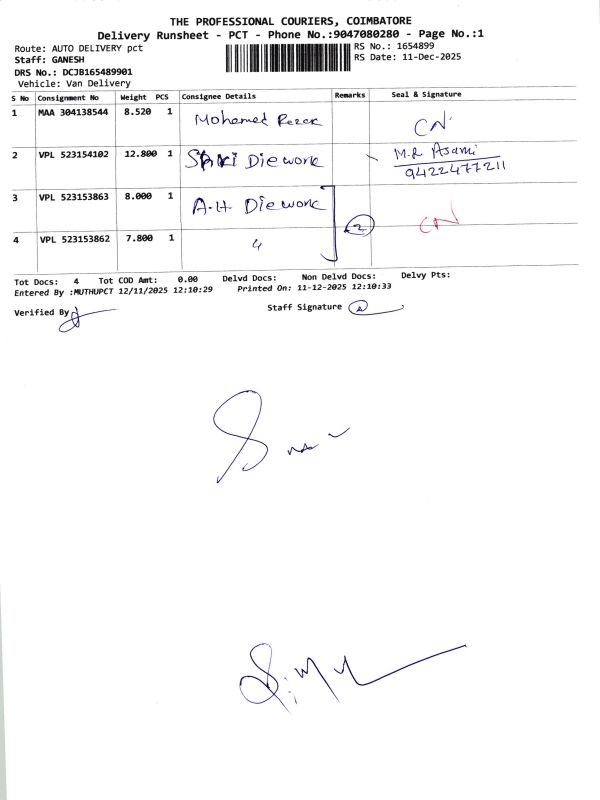 THE PROFESSIONAL COURIERS, COIMBATORE
Delivery Runsheet - PCT - Phone No.:9047080280 - Page No.:1
Route: AUTO DELIVERY pct
Staff: GANESH
DRS No.: DCJB165489901
Vehicle: Van Delivery
RS No.: 1654899
RS Date: 11-Dec-2025
S No Consignment No Weight PCS Consignee Details Remarks Seal & Signature
1 MAA 304138544 8.520 1 Mohamed CN
2 VPL 523154102 12.800 1 Diework M.R Asami
9422477211
3 VPL 523153863 8.000 1 A.H Diework 2 CN
4 VPL 523153862 7.800 1 "
Tot Docs: 4 Tot COD Amt: 0.00 Delvd Docs: Non Delvd Docs: Delvy Pts:
Entered By :MUTHUPCT 12/11/2025 12:10:29 Printed On: 11-12-2025 12:10:33
Verified By
Staff Signature